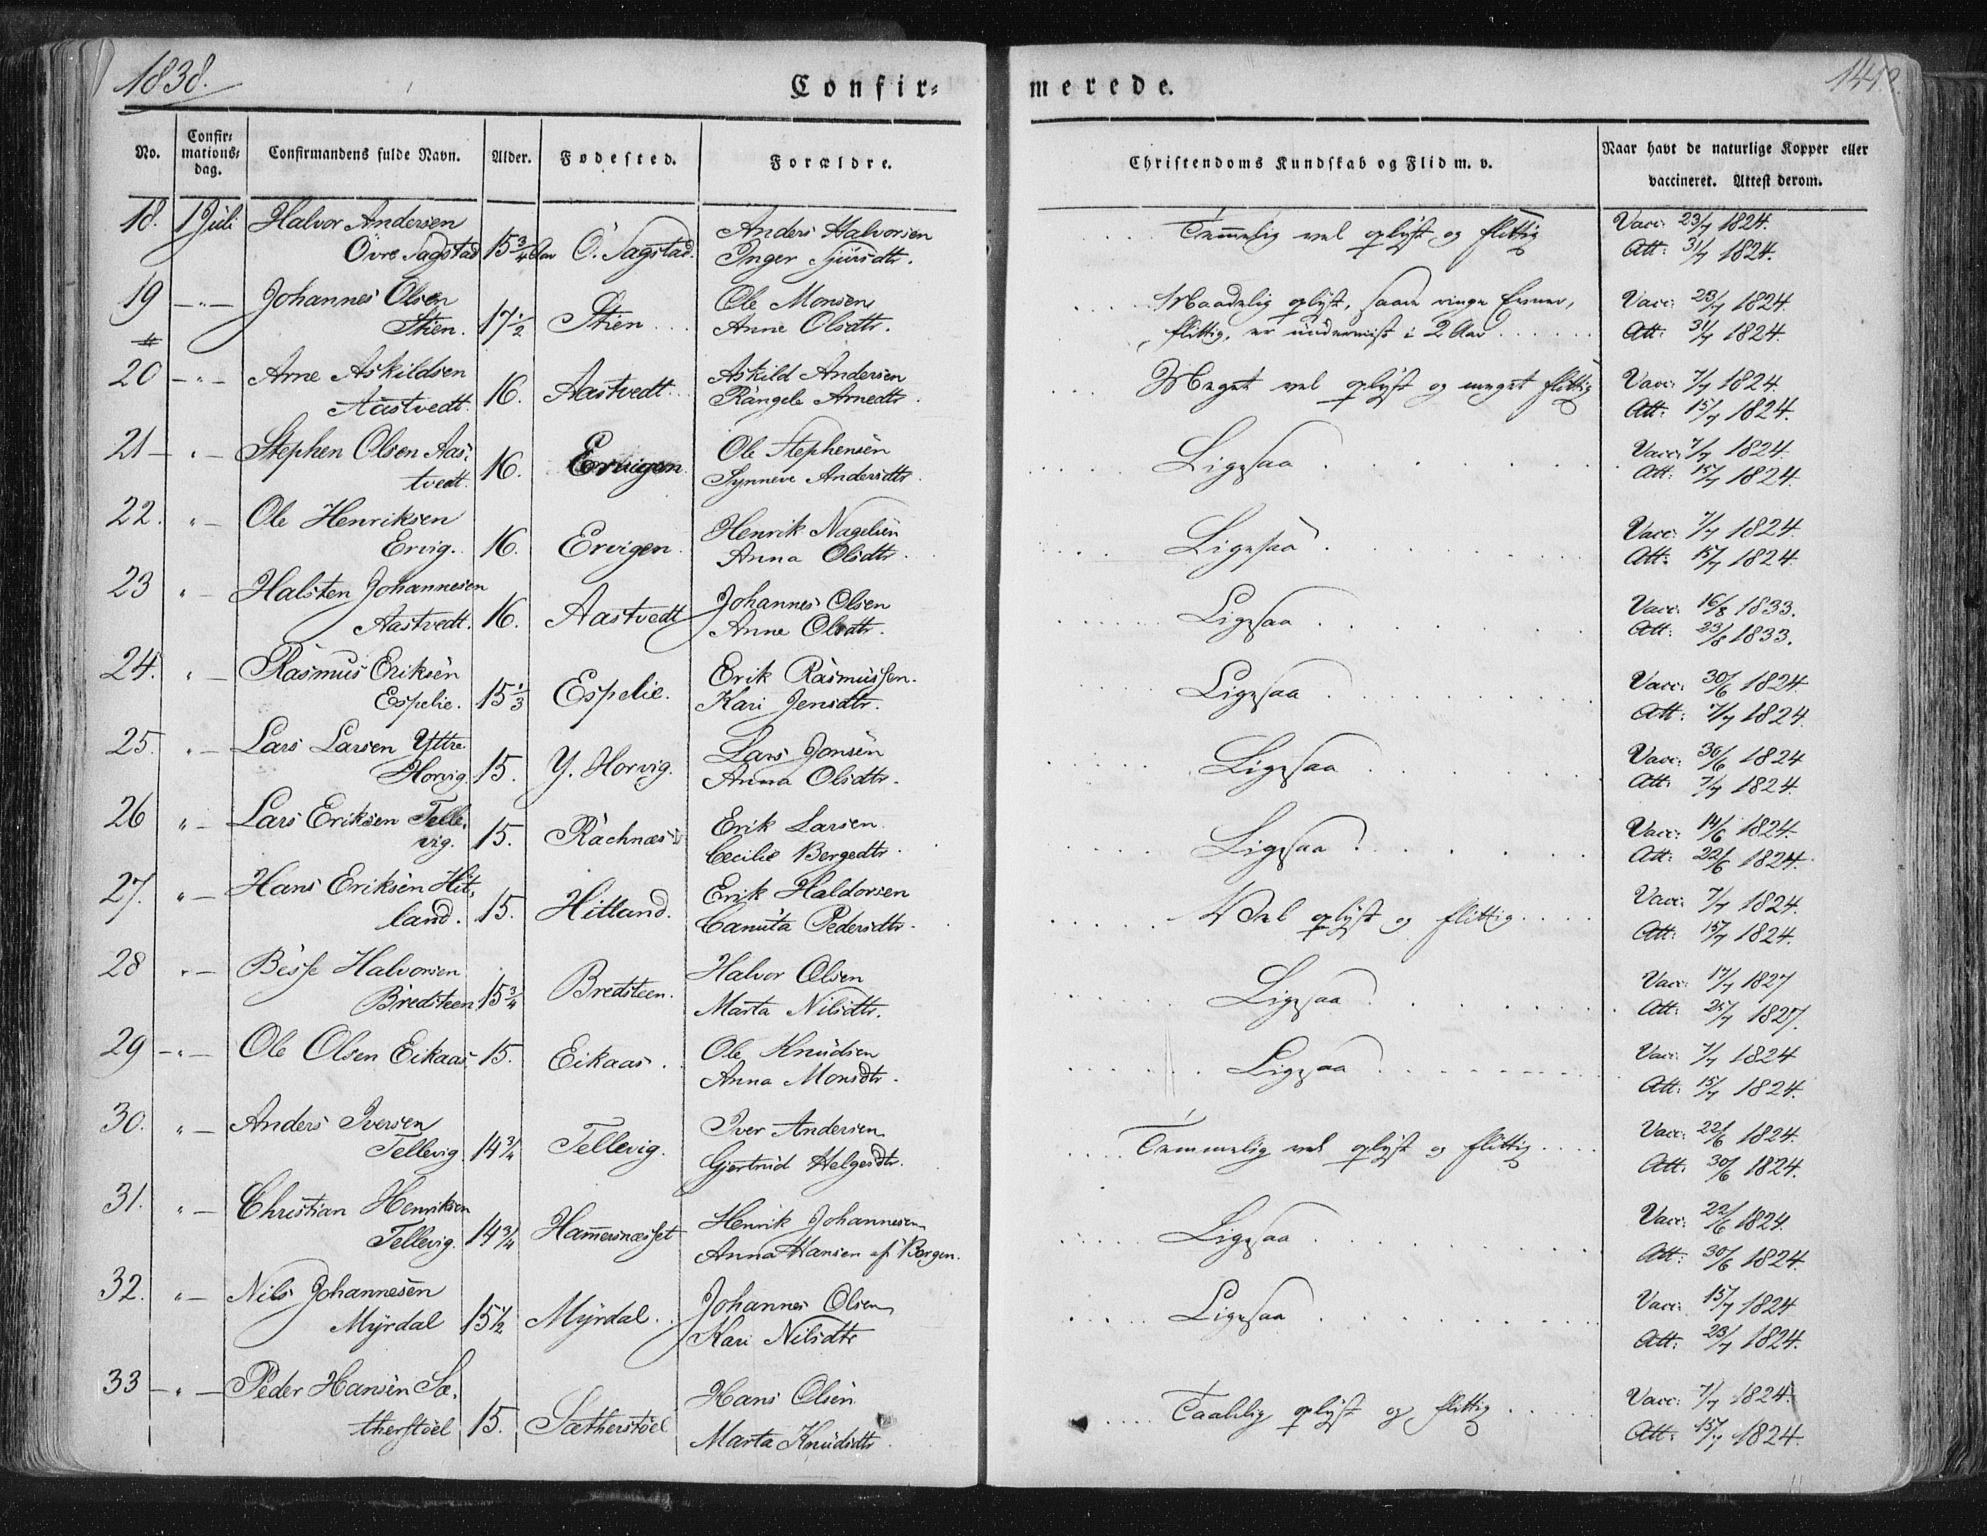 1838.
Confir-
merede.
No.
Confir-
mations-
dag.
Confirmandens fulde Navn.
Alder.
Fødested.
Forældre.
Christendoms Kundskab og Flid m. v.
Naar havt de naturlige Kopper eller
vaccineret. Attest derom.
18. 1 Juli Halvor Andersen Anders Halvorsen Temmelig vel oplyst og flittig Vacc: 23/7 1824.
Övre Sagstad 15 3/4 Aar Ö. Sagstad. Inger Sjursdtr. Att: 31/7 1824.
19 — " — Johannes Olsen Ole Monsen Maadelig oplyst, saare ringe Evner, Vacc: 23/7 1824.
Stien. 17 1/2 Stien Anne Olsdtr. flittig, er underviist i 2 Aar Att: 31/7 1824.
20 — " — Arne Askildsen Askild Andersen Meget vel oplyst og meget flittig Vacc: 7/7 1824.
Aastvedt. 16. Aastvedt Rangele Arnedtr. Att: 15/7 1824.
21 — " — Stephen Olsen Aas- Ole Stephensen Ligesaa Vacc: 7/7 1824.
tvedt. 16. Ervigen Synneve Andersdtr. Att: 15/7 1824.
22. " — Ole Henriksen Henrik Nagelsen Ligesaa Vacc: 7/7 1824.
Ervig. 16. Ervigen Anna Olsdtr. Att: 15/7 1824.
23 " — Halsten Johannesen Johannes Olsen Ligesaa Vacc: 16/8 1833.
Aastvedt. 16. Aastvedt Anne Olsdtr. Att: 23/8 1833.
24. " — Rasmus Eriksen Erik Rasmussen. Ligesaa Vacc: 30/6 1824.
Espelie. 15 1/3 Espelie. Kari Jensdtr. Att: 7/7 1824.
25. " — Lars Larsen Yttre Lars Jonsen Ligesaa Vacc: 30/6 1824
Horvig. 15. Y. Horvig. Anna Olsdtr. Att: 7/7 1824.
26 " — Lars Eriksen Telle- Erik Larsen Ligesaa Vacc: 14/6 1824.
vig. 15. Rachnæs Cecilie Bergedtr. Att: 22/6 1824.
27. " — Hans Eriksen Hit- Erik Haldorsen Vel oplyst og flittig Vacc: 7/7 1824.
land. 15. Hitland. Canuta Pedersdtr. Att: 15/7 1824.
28 " — Besse Halvorsen Halvor Olsen Ligesaa Vacc: 17/7 1827
Bredsteen 15 3/4 Bredsteen. Marta Nilsdtr. Att: 25/7 1827.
29 — " — Ole Olsen Eikaas 15. Eikaas. Ole Knudsen Ligesaa Vacc: 7/7 1824
Anna Monsdtr. Att: 15/7 1824.
30. " — Anders Iversen Iver Andersen Temmelig vel oplyst og flittig Vacc: 22/6 1824.
Tellevig 14 3/4 Tellevig. Gjertrud Helgesdtr. Att: 30/6 1824.
31. " — Christian Henriksen Henrik Johannesen Ligesaa Vacc: 22/6 1824.
Tellevig. 14 3/4 Hammersnæsset Anna Hansen af Bergen. Att: 30/6 1824.
32. " — Nils Johannesen Johannes Olsen Ligesaa Vacc: 15/7 1824
Myrdal 15 1/2 Myrdal Kari Nilsdtr Att: 23/7 1824.
33 — " — Peder Hansen Sæ- Hans Olsen Taalelig oplyst og flittig Vacc: 7/7 1824.
therstøel 15. Sætherstøel Marta Knudsdtr. Att: 15/7 1824.